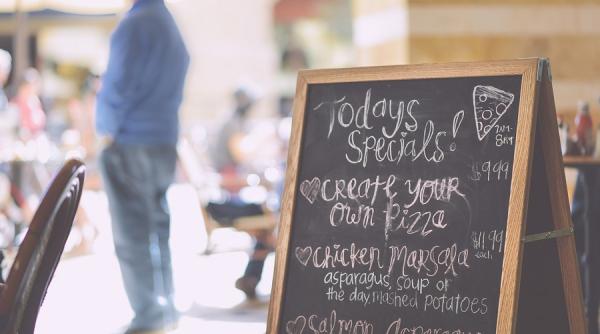 Todays
Specials!
$9.99
create your
own Pizza
$11.99
each
chicken Marsala
asparagus, soup of
the day, mashed potatoes
Salmon Asparagus